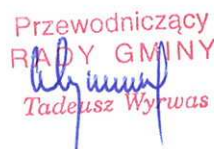 Przewodniczący
RADY GMINY
Tadeusz Wyrwas